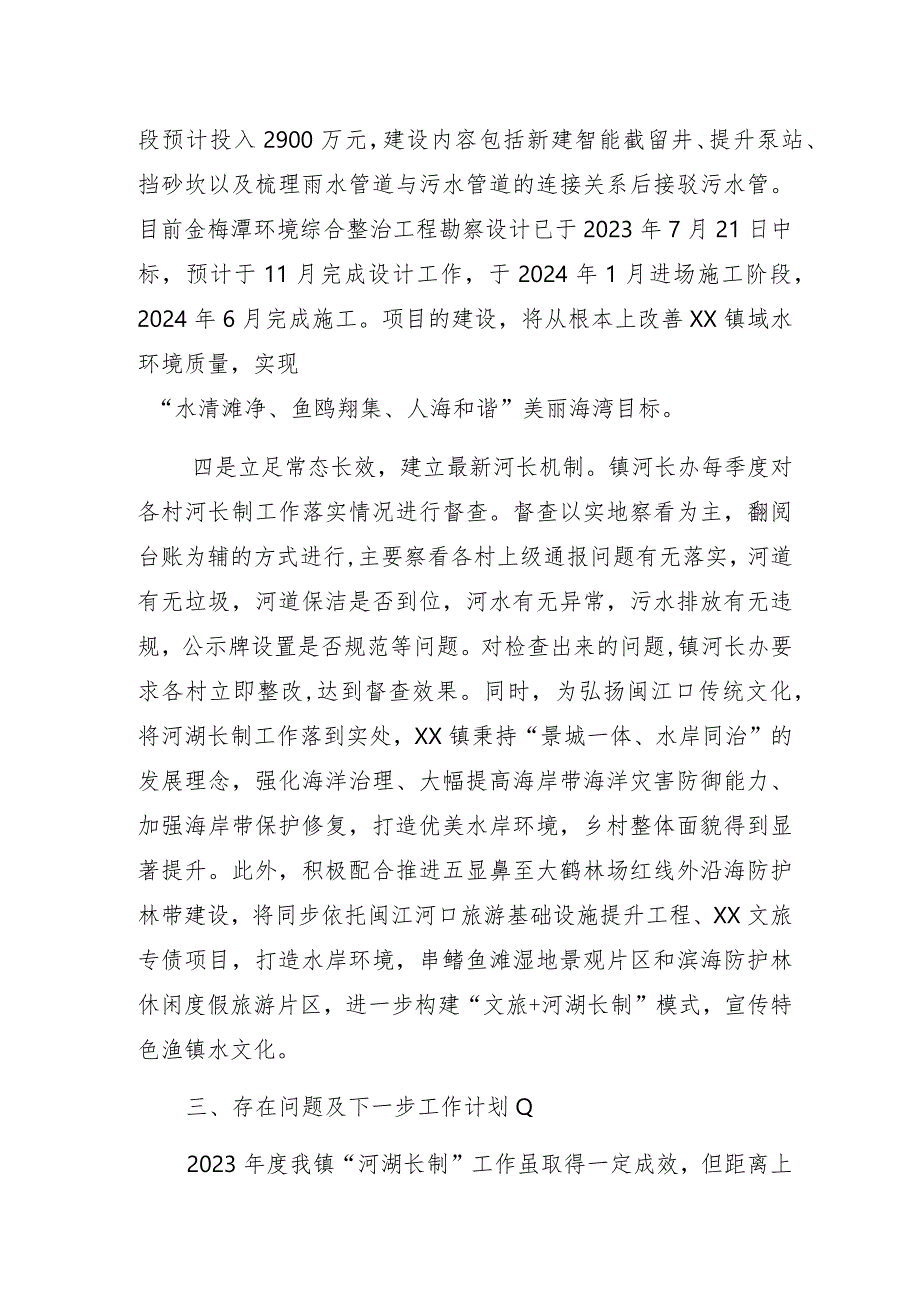 段预计投入 2900 万元,建设内容包括新建智能截留井、提升泵站、
挡砂坎以及梳理雨水管道与污水管道的连接关系后接驳污水管。
目前金梅潭环境综合整治工程勘察设计已于 2023 年 7 月 21 日中
标，预计于 11 月完成设计工作，于 2024 年 1 月进场施工阶段，
2024 年 6 月完成施工。项目的建设，将从根本上改善 XX 镇域水
环境质量，实现
“水清滩净、鱼鸥翔集、人海和谐”美丽海湾目标。
四是立足常态长效，建立最新河长机制。镇河长办每季度对
各村河长制工作落实情况进行督查。督查以实地察看为主，翻阅
台账为辅的方式进行,主要察看各村上级通报问题有无落实，河道
有无垃圾，河道保洁是否到位，河水有无异常，污水排放有无违
规，公示牌设置是否规范等问题。对检查出来的问题,镇河长办要
求各村立即整改,达到督查效果。同时，为弘扬闽江口传统文化，
将河湖长制工作落到实处，XX 镇秉持“景城一体、水岸同治”的
发展理念，强化海洋治理、大幅提高海岸带海洋灾害防御能力、
加强海岸带保护修复，打造优美水岸环境，乡村整体面貌得到显
著提升。此外，积极配合推进五显鼻至大鹤林场红线外沿海防护
林带建设，将同步依托闽江河口旅游基础设施提升工程、XX 文旅
专债项目，打造水岸环境，串鳝鱼滩湿地景观片区和滨海防护林
休闲度假旅游片区，进一步构建“文旅+河湖长制”模式，宣传特
色渔镇水文化。
三、存在问题及下一步工作计划 Q
2023 年度我镇“河湖长制”工作虽取得一定成效，但距离上